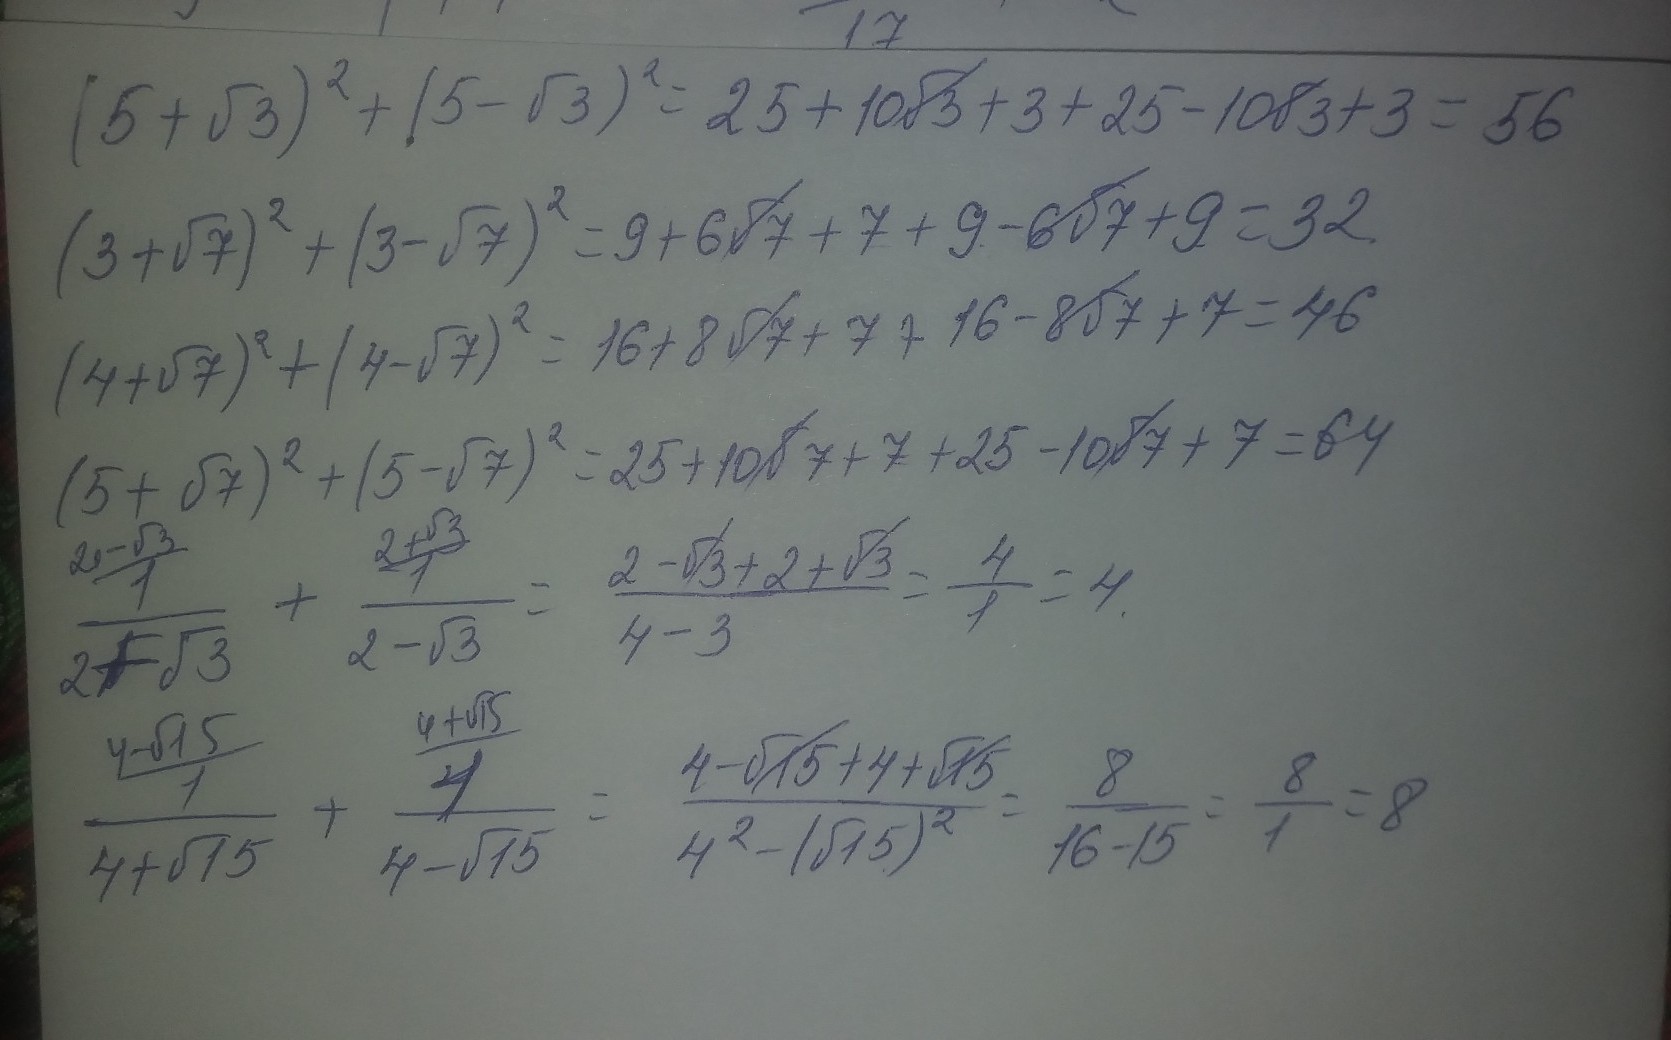 17
(5+√3)²+(5-√3)²= 25+10√3+3+25-10√3+3=56
(3+√7)²+(3-√7)²=9+6√7+7+9-6√7+9=32
(4+√7)²+(4-√7)²=16+8√7+7+16-8√7+7=46
(5+√7)²+(5-√7)²=25+10√7+7+25-10√7+7=64
2-√3 2+√3
1 + 1 = 2-√3+2+√3 = 4 = 4.
2+√3 2-√3 4-3 1
4-√15 4+√15
1 + 1 = 4-√15+4+√15 = 8 = 8 = 8
4+√15 4-√15 4²-(√15)² 16-15 1